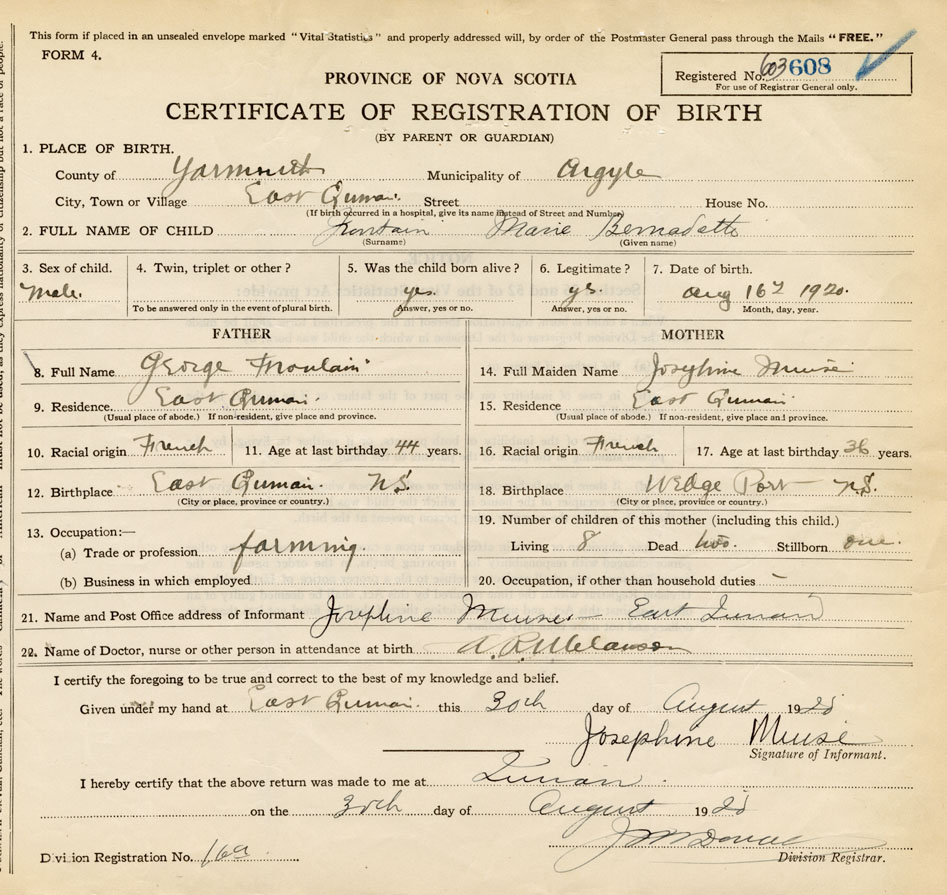 This form if placed in an unsealed envelope marked "Vital Statistics" and properly addressed will, by order of the Postmaster General pass through the Mails "FREE."
FORM 4.
Registered No. 603 608
For use of Registrar General only.
PROVINCE OF NOVA SCOTIA
CERTIFICATE OF REGISTRATION OF BIRTH
(BY PARENT OR GUARDIAN)
1. PLACE OF BIRTH.
County of Yarmouth Municipality of Argyle
City, Town or Village East Quinan. Street House No.
(If birth occurred in a hospital, give its name instead of Street and Number)
2. FULL NAME OF CHILD Marie Bernadette
(Surname) (Given name)
3. Sex of child. 4. Twin, triplet or other? 5. Was the child born alive? 6. Legitimate? 7. Date of birth.
Male. yes. yes. Aug 16 1920.
To be answered only in the event of plural birth. Answer, yes or no. Answer, yes or no. Month, day, year.
FATHER MOTHER
8. Full Name George 14. Full Maiden Name Josephine Muise
9. Residence. East Quinan. 15. Residence East Quinan
(Usual place of abode.) If non-resident, give place and province. (Usual place of abode.) If non-resident, give place and province.
10. Racial origin French 11. Age at last birthday 44 years. 16. Racial origin French 17. Age at last birthday 36 years.
12. Birthplace East Quinan. N.S. 18. Birthplace Wedge Port N.S.
(City or place, province or country.) (City or place, province or country.)
13. Occupation:— 19. Number of children of this mother (including this child.)
(a) Trade or profession farming. Living 8 Dead two. Stillborn one.
(b) Business in which employed 20. Occupation, if other than household duties -
21. Name and Post Office address of Informant Josephine Muise East Quinan
22. Name of Doctor, nurse or other person in attendance at birth A. R. Melanson
I certify the foregoing to be true and correct to the best of my knowledge and belief.
Given under my hand at East Quinan. this 30th day of August 19
Josephine Muise
Signature of Informant.
I hereby certify that the above return was made to me at Quinan.
on the 30th day of August 19
Division Registrar.
Division Registration No.